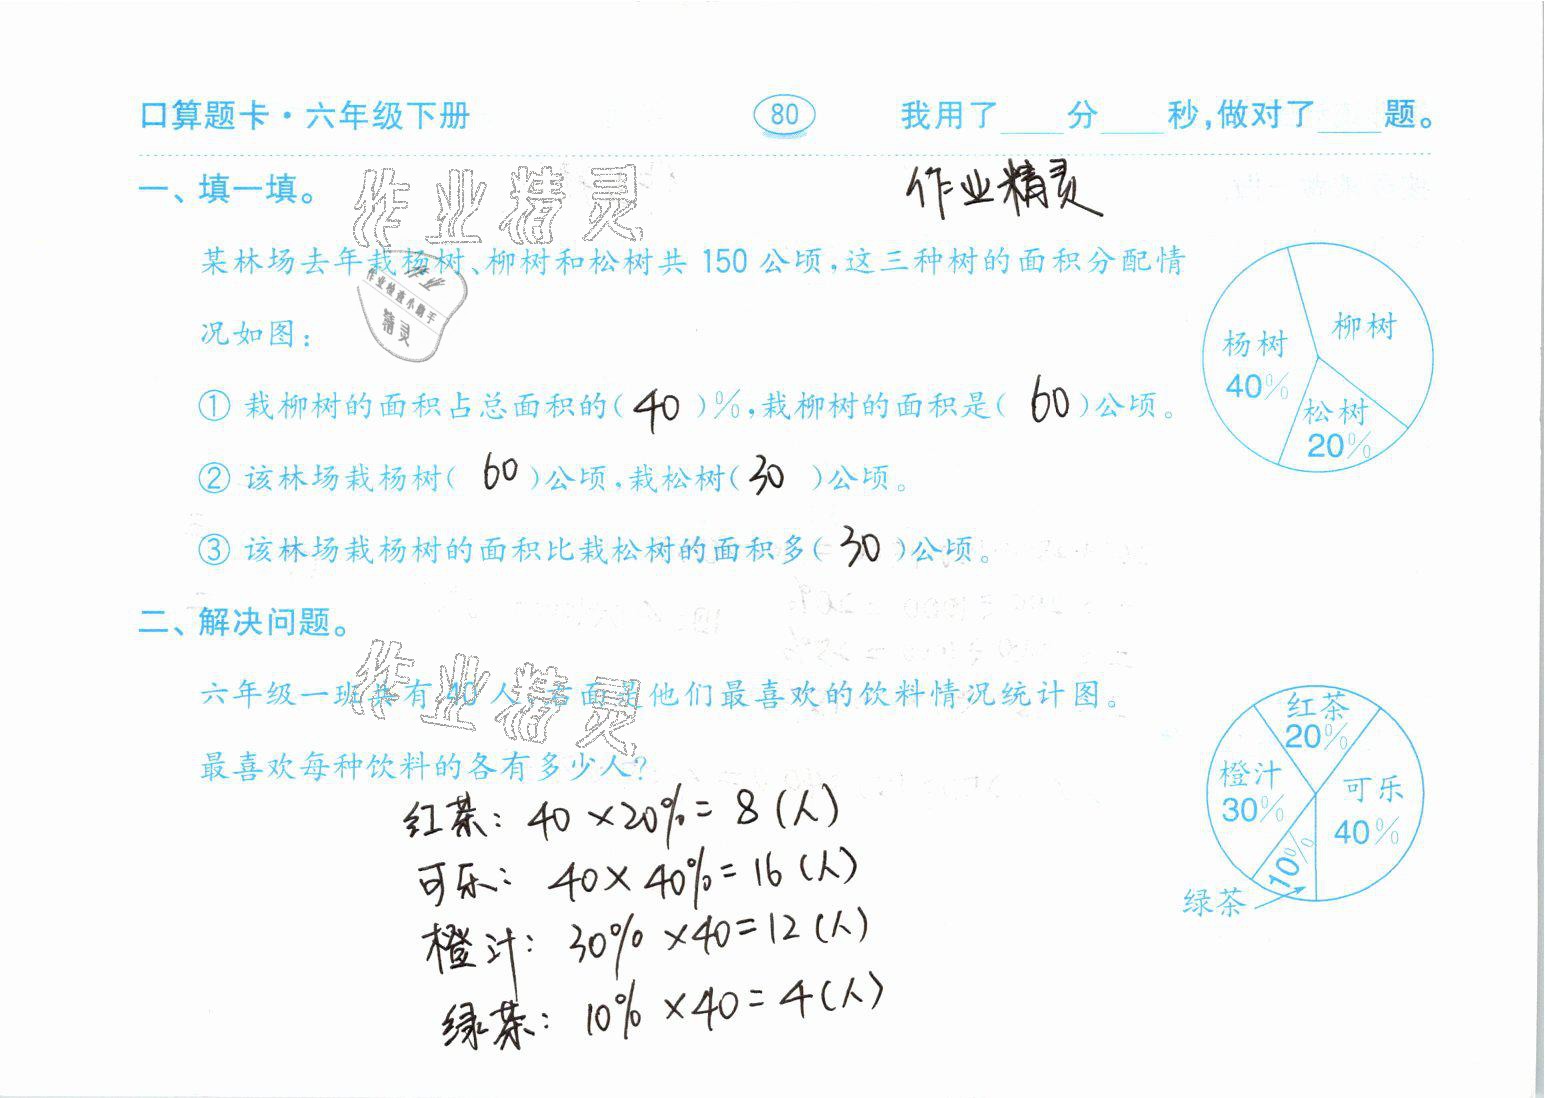 口算题卡·六年级下册 80 我用了____分____秒,做对了____题。
一、填一填。
作业精灵
作业精灵
某林场去年栽杨树、柳树和松树共 150 公顷,这三种树的面积分配情
况如图:
作业
作业检查小助手
精灵
杨树
40%
柳树
松树
20%
① 栽柳树的面积占总面积的( 40 )%,栽柳树的面积是( 60 )公顷。
② 该林场栽杨树( 60 )公顷,栽松树( 30 )公顷。
③ 该林场栽杨树的面积比栽松树的面积多( 30 )公顷。
二、解决问题。
作业精灵
六年级一班共有 40 人,右面是他们最喜欢的饮料情况统计图。
最喜欢每种饮料的各有多少人?
红茶
20%
橙汁
30%
可乐
40%
10%
绿茶
红茶: 40×20%=8(人)
可乐: 40×40%=16(人)
橙汁: 30%×40=12(人)
绿茶: 10%×40=4(人)